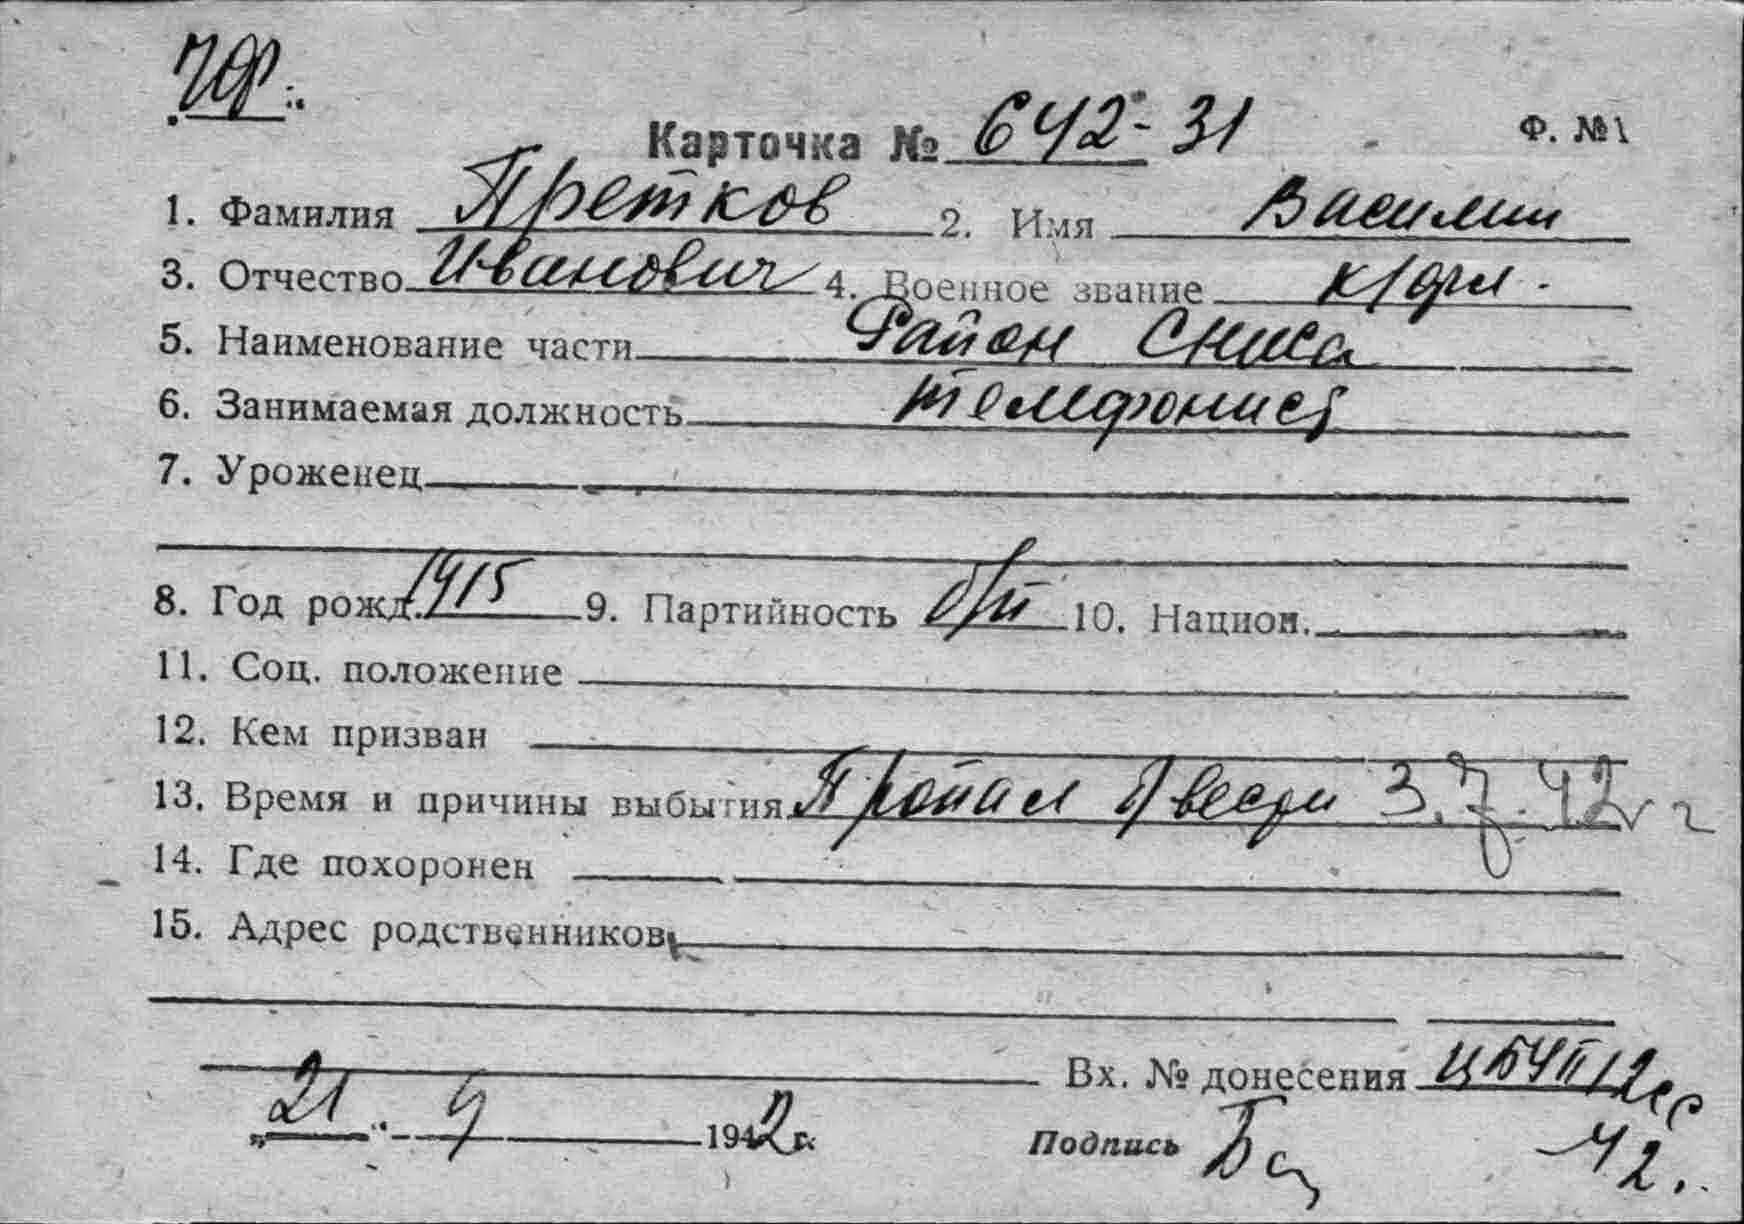 ЧФ.
Карточка № 642-31 Ф. №1
1. Фамилия Претков 2. Имя Василий
3. Отчество Иванович 4. Военное звание к/фл.
5. Наименование части Район СНиСа
6. Занимаемая должность телефонист
7. Уроженец
8. Год рожд. 1915 9. Партийность б/п 10. Национ.
11. Соц. положение
12. Кем призван
13. Время и причины выбытия Пропал б/вести 3.7.42 г
14. Где похоронен
15. Адрес родственников
Вх. № донесения 12сс
„21“ 9 1942 г. Подпись 42.